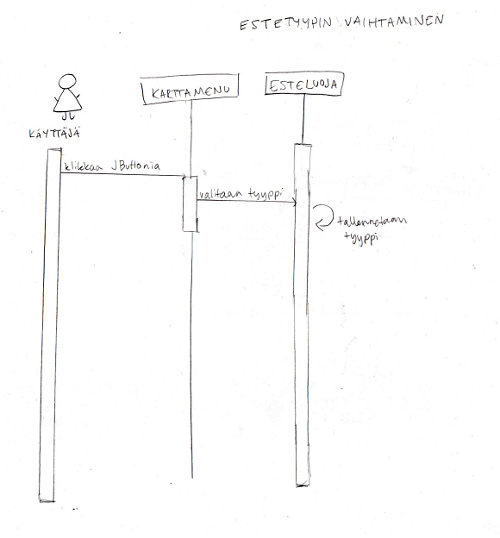 ESTETYYPIN VAIHTAMINEN
KARTTAMENU
ESTELUOJA
KÄYTTÄJÄ
klikkaa JButtonia
valitaan tyyppi
tallennetaan
tyyppi